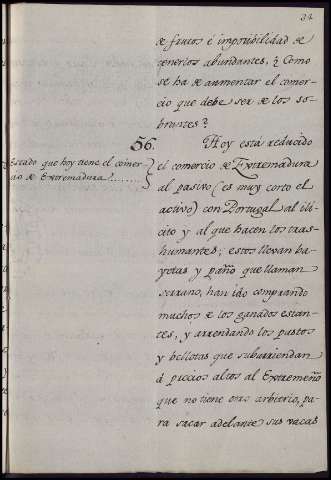 24
de frutos é imposibilidad de
tenerlos abundantes, ¿Como
se ha de aumentar el comer-
cio que debe ser de los so-
brantes?
56.
Estado que hoy tiene el comer-
cio de Extremadura.
Hoy está reducido
el comercio de Extremadura
al pasivo (es muy corto el
activo) con Portugal al ilí-
cito y al que hacen los tras-
humantes; estos llevan ba-
yetas y paño que llaman
serrano, han ido comprando
muchos de los ganados estan-
tes, y arrendando los pastos
y bellotas que subarriendan
á precios altos al Extremeño
que no tiene otro arbitrio, pa-
ra sacar adelante sus vacas